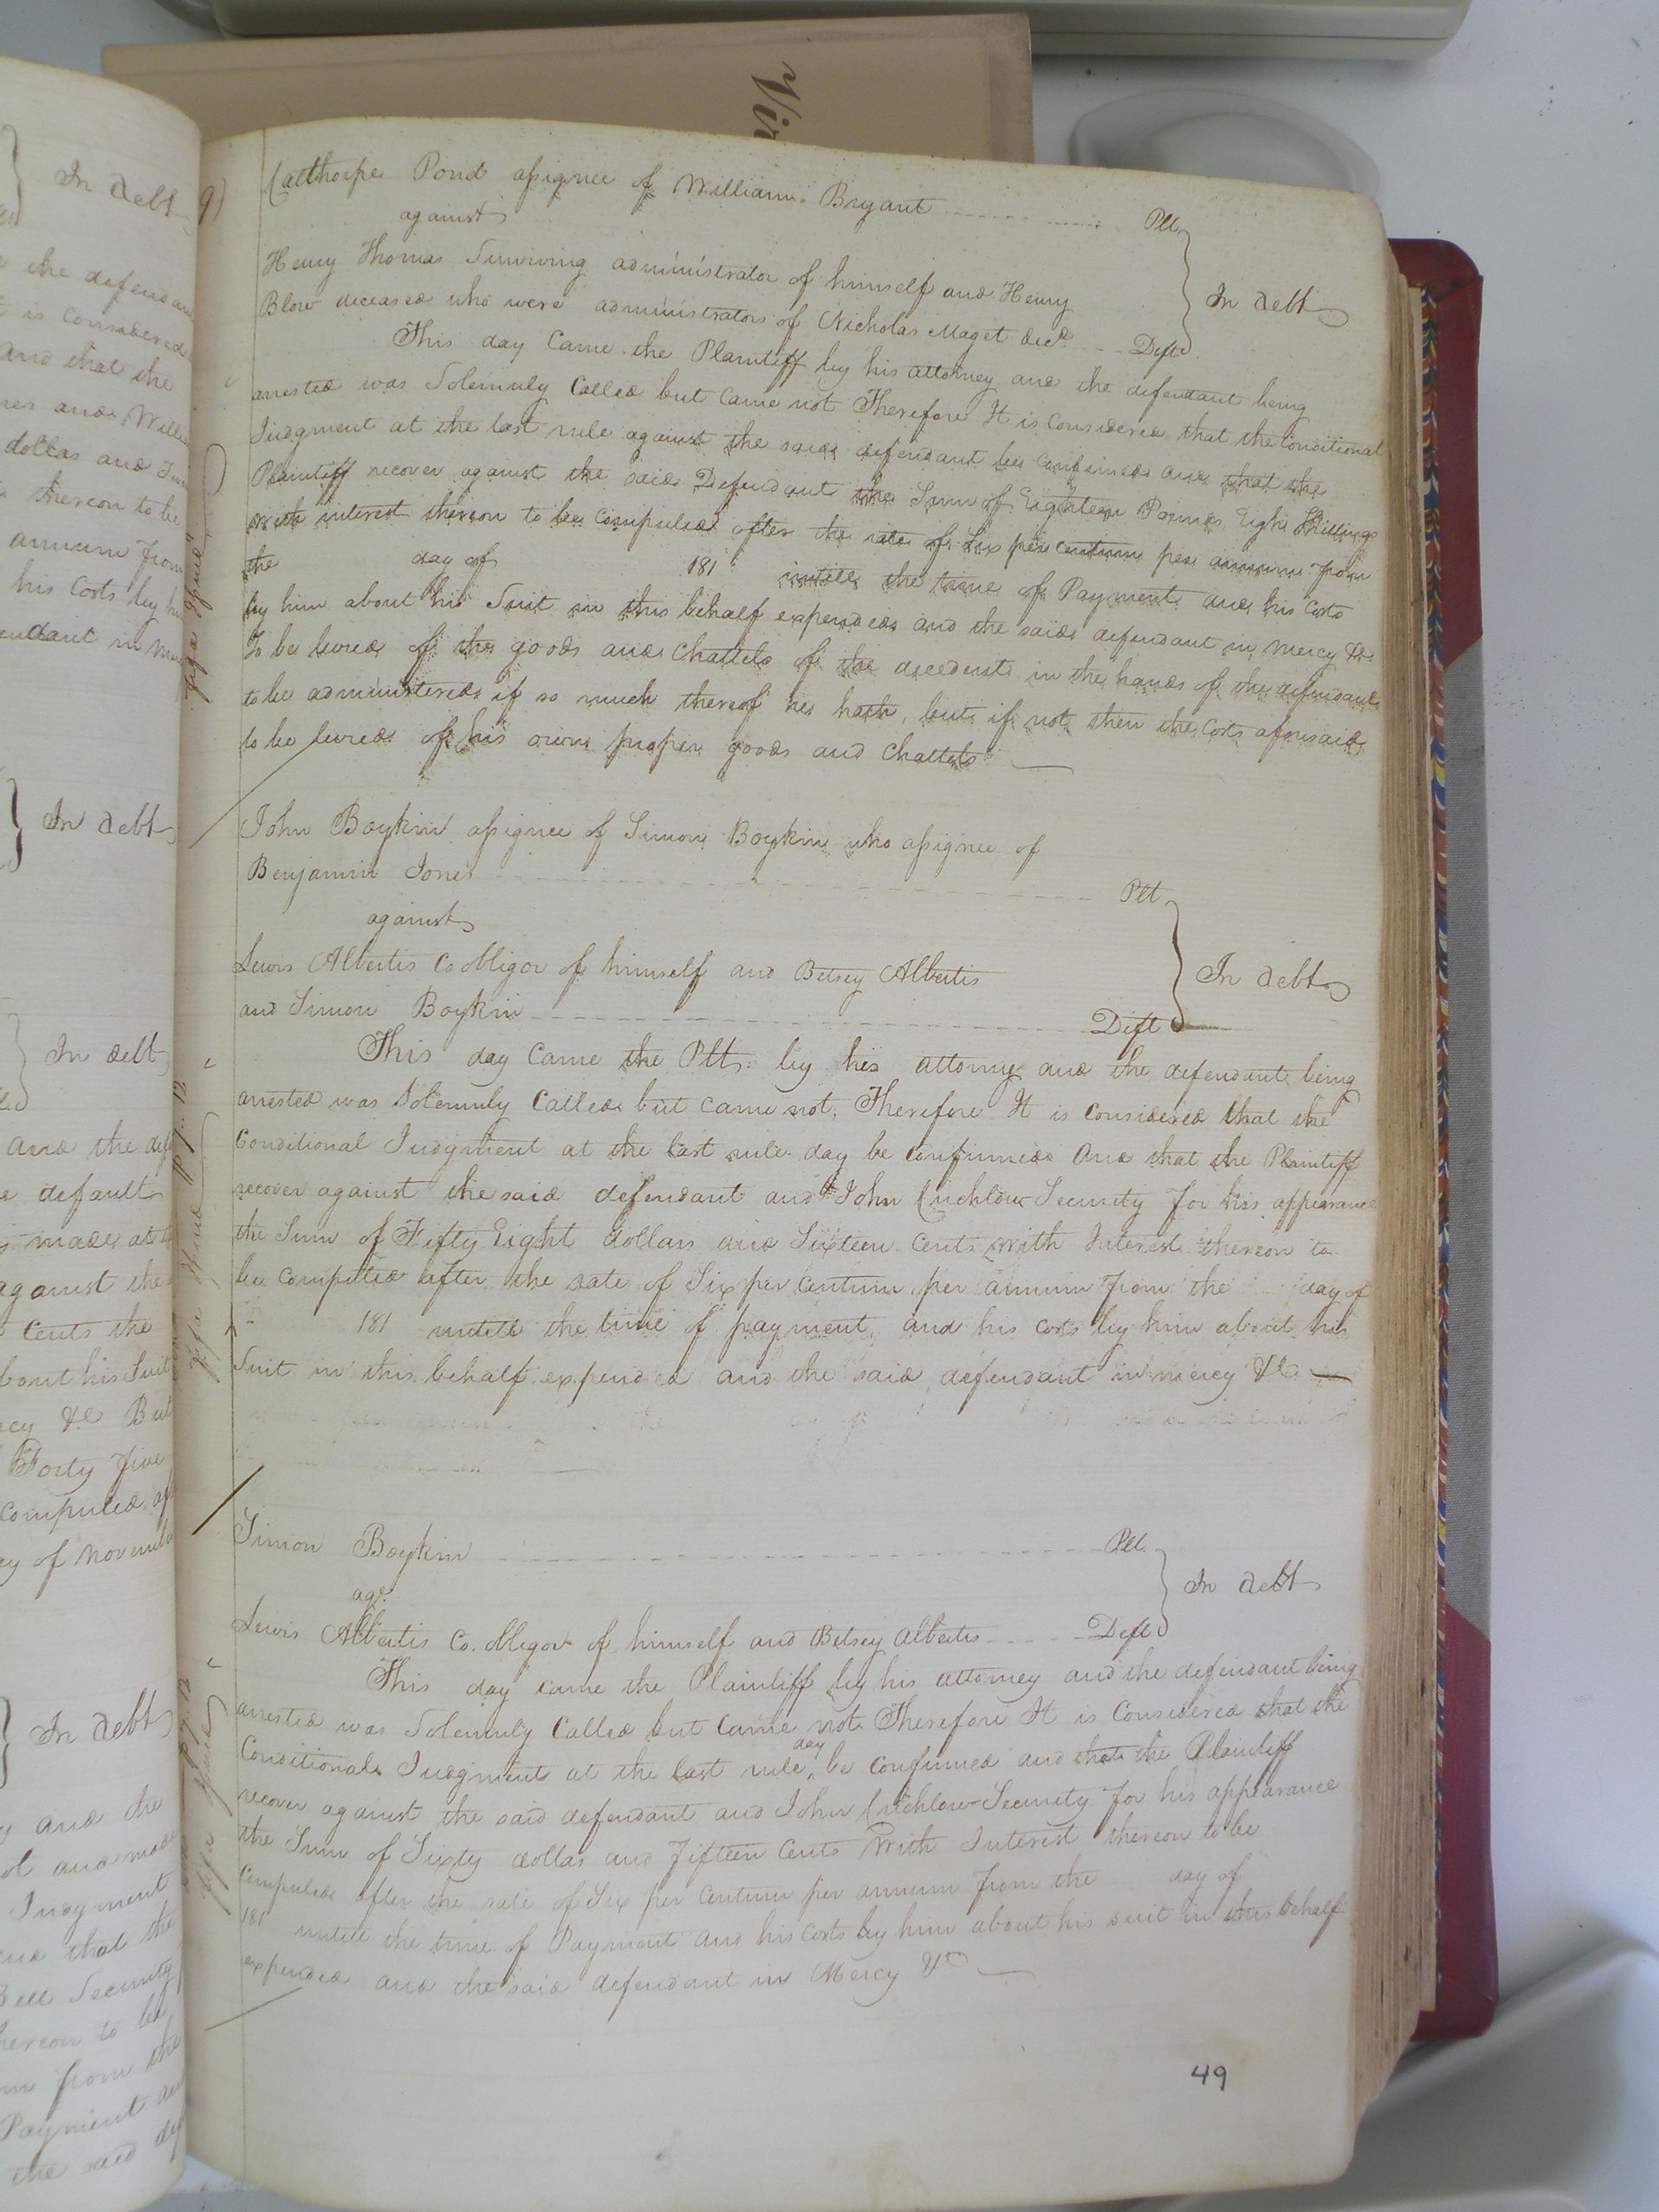 In debt
the defendan
is considered
and that the
and Willia
dollas and
thereon to be
annum from
his Costs by h
endant in mer
In debt
In debt
and the def
default
made at
against the
Cents the
bout his Suit
cy &c But
Forty five
Computed af
y of novemb
In debt
and the
and made
Judgment
and that the
Bell Security
hereon to be
from the
Payment an
the said de
Vir
9)
Calthorpe Pond assignee of William Bryant Plt.
against
In debt
Henry Thomas Surviving administrator of himself and Henry
Blow deceased who were administrators of Nicholas Maget decd. Deft
This day Came the Plaintiff by his attorney and the defendant being
arrested was Solemnly Called but Came not Therefore It is Considered that the Conditional
Judgment at the last rule against the said defendant be Confirmed and that the
Plaintiff recover against the said Defendant the Sum of Eighteen Pounds Eight Shillings
with interest thereon to be Computed after the rate of Six per centum per annum from
the day of 181 untill the time of Payment and his Costs
by him about his Suit in this behalf expended and the said defendant in mercy &c
To be levied of the goods and Chattels of the decedent in the hands of the defendant
to be administered if so much thereof he hath, but if not then the Costs aforesaid
to be levied of his own proper goods and Chattels
fifa Issued
John Boykin assignee of Simon Boykin who assignee of
Benjamin Jones Plt
against
In debt
Lewis Albertis Co Obligor of himself and Betsey Albertis
and Simon Boykin Deft
This day Came the Plt. by his attorney and the defendant being
arrested was Solemnly Called but came not, Therefore It is Considered that the
Conditional Judgment at the last rule day be Confirmed And that the Plaintiff
recover against the said defendant and John Crichlow Security for his appearance
the Sum of Fifty Eight dollars and Sixteen Cents with Interest thereon to
be Computed after the rate of Six per Centum per annum from the day of
181 untill the time of payment, and his Costs by him about his
Suit in this behalf expended and the said defendant in mercy &c
fifa Issued
Simon Boykin Plt.
agt.
In debt
Lewis Albertis Co. Obligor of himself and Betsey Albertis Deft
This day came the Plaintiff by his attorney and the defendant being
arrested was Solemnly Called but Came not Therefore It is Considered that the
Conditional Judgment at the last rule day be Confirmed and that the Plaintiff
recover against the said defendant and John Crichlow Security for his appearance
the Sum of Sixty dollas and Fifteen Cents With Interest thereon to be
Computed after the rate of Six per Centum per annum from the day of
181 untill the time of Payment and his Costs by him about his suit in this behalf
expended and the said defendant in Mercy &c
fifa Issued
49